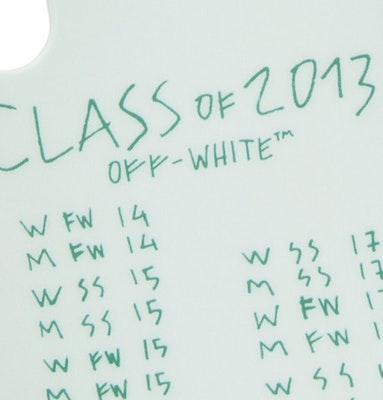 CLASS OF 2013
OFF-WHITE™
W FW 14
M FW 14
W SS 15
M SS 15
W FW 15
M FW 15
W SS 17
M SS 17
W FW 17
M FW
W SS